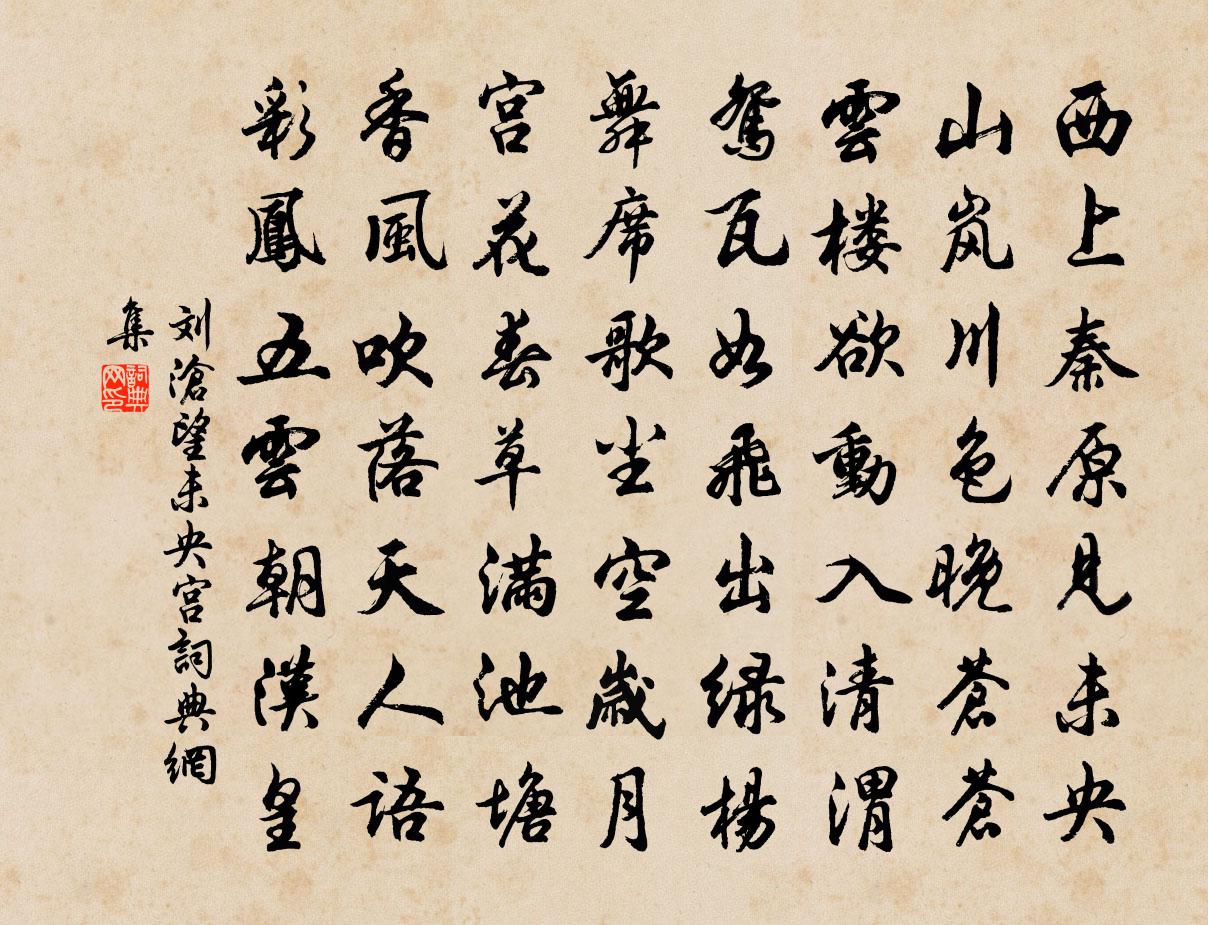 西上秦原見未央
山岚川色晚蒼蒼
雲楼欲動入清渭
鴛瓦如飛出緑楊
舞席歌尘空歲月
宮花春草滿池塘
香風吹落天人語
彩鳳五雲朝漢皇
刘滄望未央宮詞典網
集
詞典网印